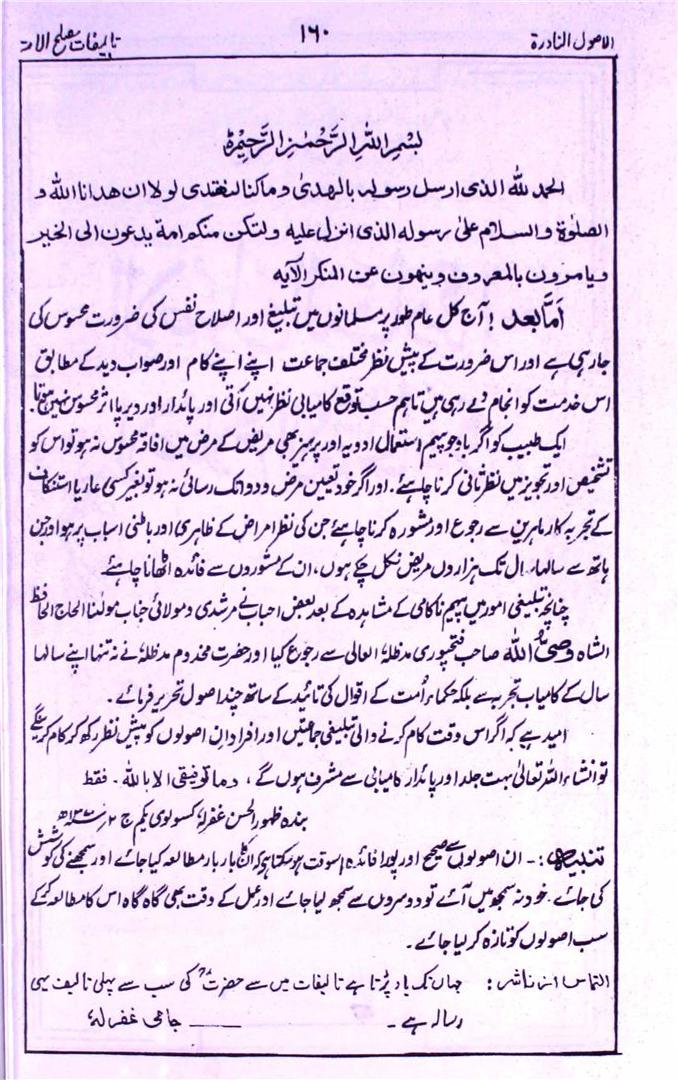 الاصول النادرة ۱۶۰ تالیفات مصلح الامت
بسم الله الرحمن الرحيم
الحمد لله الذى ارسل رسوله بالهدىٰ وما كنا لنهتدى لولا ان هدانا الله و
الصلوٰة والسلام علىٰ رسوله الذى انزل عليه ولتكن منكم امة يدعون الى الخير
ويامرون بالمعروف وينهون عن المنكر الآيه
اَمَّا بعد! آج کل عام طور پر مسلمانوں میں تبلیغ اور اصلاح نفس کی ضرورت محسوس کی
جا رہی ہے اور اس ضرورت کے پیش نظر مختلف جماعت اپنے اپنے کام اور صواب دید کے مطابق
اس خدمت کو انجام دے رہی ہیں تاہم حسب توقع کامیابی نظر نہیں آتی اور پائدار اور دیرپا اثر محسوس نہیں ہوتا۔
ایک طبیب کو اگر باوجود پیہم استعمال ادویہ اور پرہیز بھی مریض کے مرض میں افاقہ محسوس نہ ہو تو اس کو
تشخیص اور تجویز میں نظر ثانی کرنا چاہئے۔ اور اگر خود تعیین مرض و دوا تک رسائی نہ ہو تو بغیر کسی عار یا استنکاف
کے تجربہ کار ماہرین سے رجوع اور مشورہ کرنا چاہئے جن کی نظر امراض کے ظاہری اور باطنی اسباب پر ہو اور جن
ہاتھ سے سالہا سال تک ہزاروں مریض نکل چکے ہوں، ان کے مشوروں سے فائدہ اٹھانا چاہئے۔
چنانچہ تبلیغی امور میں پیہم ناکامی کے مشاہدہ کے بعد بعض احباب نے مرشدی و مولائی جناب مولٰنا الحاج الحافظ
الشاہ وصی اللہ صاحب فتحپوری مدظلہٗ العالی سے رجوع کیا اور حضرت مخدوم مدظلہٗ نے نہ تنہا اپنے سالہا
سال کے کامیاب تجربہ سے بلکہ حکماء امت کے اقوال کی تائید کے ساتھ چند اصول تحریر فرمائے۔
امید ہے کہ اگر اس وقت کام کرنے والی تبلیغی جماعتیں اور افراد ان اصولوں کو پیش نظر رکھ کر کام کرینگے
تو انشاء اللہ تعالیٰ بہت جلد اور پائدار کامیابی سے مشرف ہوں گے، وما توفیقی الا باللہ۔ فقط
بندہ ظہور الحسن غفرلہٗ کسولوی یکم ج ۲
تنبیہ:- ان اصولوں سے صحیح اور پورا فائدہ اسوقت ہو سکتا ہے کہ ان کا بار بار مطالعہ کیا جائے اور سمجھنے کی کوشش
کی جائے۔ خود نہ سمجھ میں آئے تو دوسروں سے سمجھ لیا جائے اور عمل کے وقت بھی گاہ گاہ اس کا مطالعہ کر کے
سب اصولوں کو تازہ کر لیا جائے۔
التماس از ناشر: جہاں تک یاد پڑتا ہے تالیفات میں سے حضرتؒ کی سب سے پہلی تالیف یہی
رسالہ ہے۔ ــــــ جامی غفرلہٗ